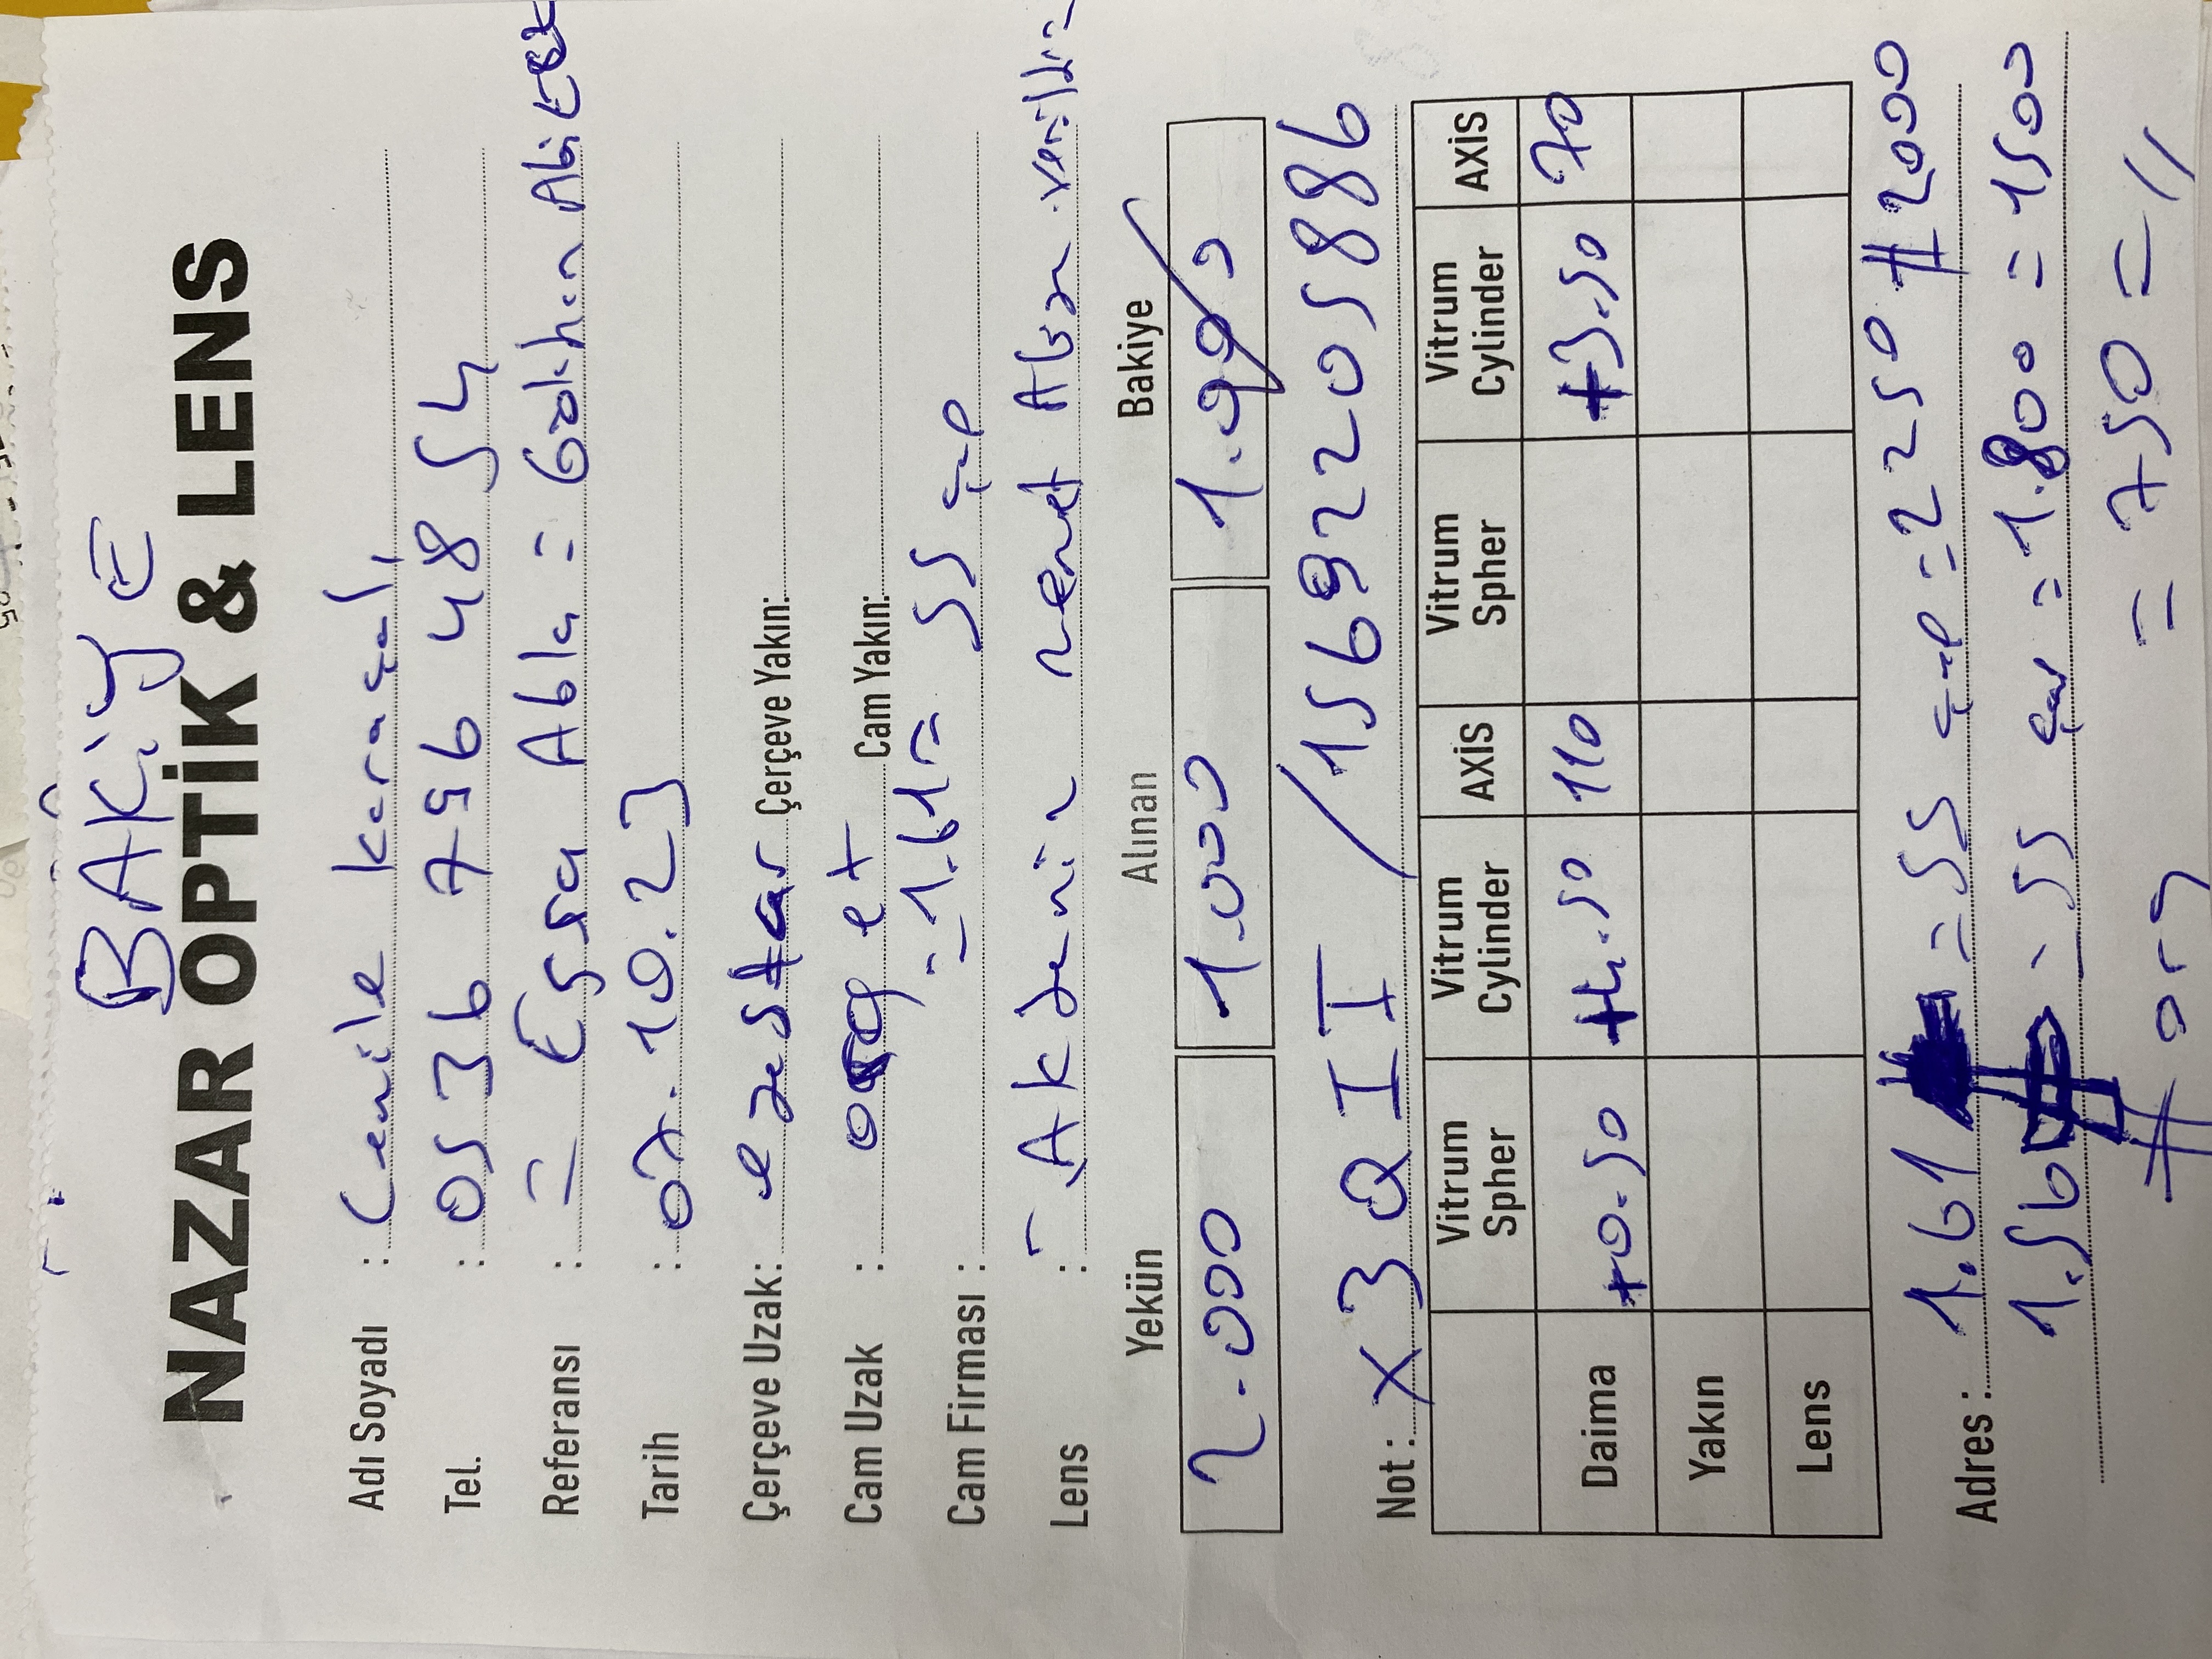 BAKİYE
NAZAR OPTİK & LENS
Adı Soyadı : Cemile Karaçalı
Tel. : 0536 796 48 54
Referansı : = Eşra Abla = Gökhan Abi
Tarih : 07.10.23
Çerçeve Uzak: exstar Çerçeve Yakın:
Cam Uzak : org et Cam Yakın:
=1.61= 55 çap
Cam Firması :
Lens : - Akdeniz verildi=
Yekün Alınan Bakiye
2.000 1.000 1.000
Not : X3QII /15692205886
Vitrum Spher Vitrum Cylinder AXİS Vitrum Spher Vitrum Cylinder AXİS
Daima +0.50 +4.50 110 +3.50 70
Yakın
Lens
Adres : 1.61 = 55 çap = 2250 # 2000
1.56 = 55 çap = 1.800 = 1500
# org = 750 = //